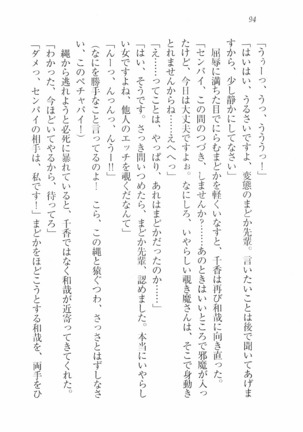 94
「うぅーっ、うっ、うううっ！」
「はいはい、うるさいですよ、変態のまどか先輩。言いたいことは後で聞いてあげま
すから、少し静かにしてなさい」
屈辱に満ちた目でにらむまどかを軽くいなすと、千香は再び和哉に向き直った。
「センパイ、この間のつづき、しませんか？……あのときはいいところで邪魔が入っ
たけど、今日は大丈夫ですよぉ。なにしろ、いやらしい覗き魔さんは、そこで身動き
とれませんからね……えへっ」
「え……ってことは、やっぱり、あれはまどかだったのか……」
「はい、そうです。さっき問いつめたら、まどか先輩、認めました。本当にいやらし
い女ですよね、他人のエッチを覗くだなんて」
「んーっ、んっんっ、んうーー!!」
（なにを勝手なこと言ってるのよ！　こら、この縄と猿ぐつわ、さっさとはずしなさ
い、このペチャパイ！）
縄から逃れようと必死に暴れていると、千香ではなく和哉が近寄ってきてくれた。
「わかった、今ほどいてやるから、待ってろ」
「ダメっ、センパイの相手は、私です！」まどかをほどこうとする和哉を、両手をひ